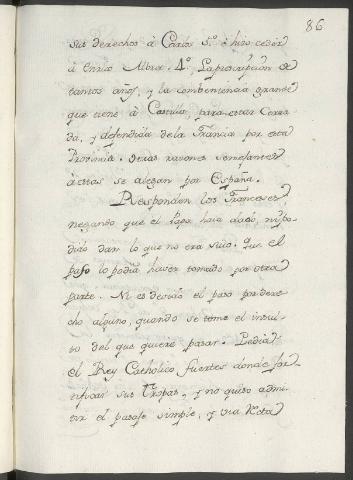 86
sus derechos à Carlos 5.º è hizo ceder
à Enrri Albret. 4.º La prescripcion de
tantos años, y la combeniencia grande
que tiene à Castilla, para estar Cerra
da, y defendida de la Francia por esta
Provincia. Otras razones semejantes
à estas se alegan por España.
Responden los Franceses,
negando que el Papa haia dado, ni pu
diese dar lo que no era suio. Que el
paso lo podia haver tomado por otra
parte. Ni es devido el paso por dere
cho alguno, quando se teme el insul
to del que quiere pasar. Pedia
el Rey Catholico fuertes donde for
tificar sus Tropas, y no quiso admi
tir el pasaje simple, y via Recta